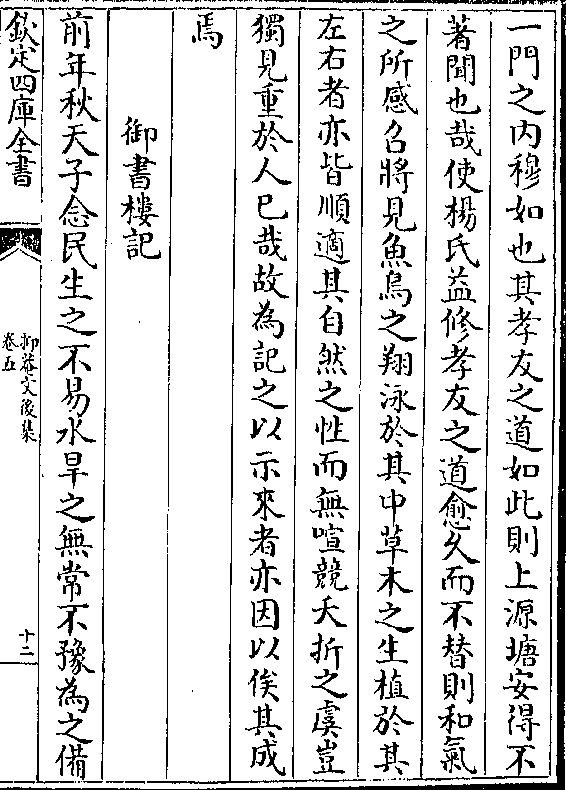 一門之内穆如也其孝友之道如此則上源塘安得不
著聞也哉使楊氏益修孝友之道愈乆而不替則和氣
之所感召將見魚鳥之翔泳於其中草木之生植於其
左右者亦皆順適其自然之性而無喧競夭折之虞豈
獨見重於人已哉故為記之以示來者亦因以俟其成
焉
御書樓記
前年秋天子念民生之不易水旱之無常不豫為之備
欽定四庫全書
抑菴文後集
卷五
十二